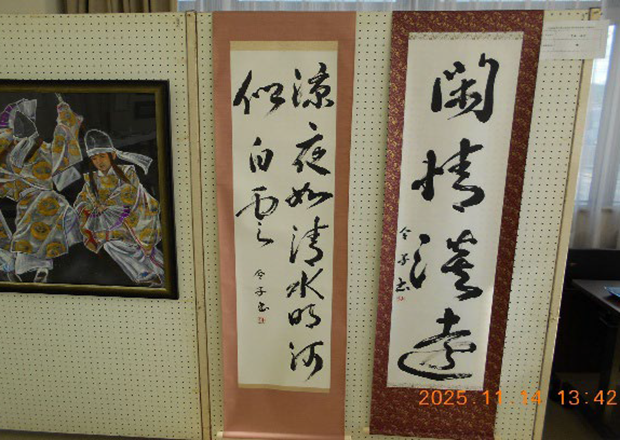 閑情淡遠
令子書
涼夜如清水明河
似白雲
令子書
2025.11.14 13:42